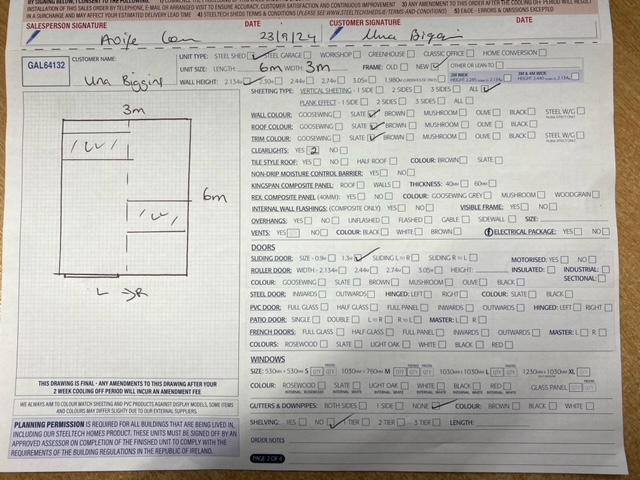 BY SIGNING BELOW, I CONFIRM THE FOLLOWING:
INSTALLATION OF THIS SALES ORDER BY STEELTECH TO ENSURE ACCURACY, CUSTOMER SATISFACTION AND CONTINUOUS IMPROVEMENT. 3) ANY AMENDMENTS TO THIS ORDER AFTER THE COOLING OFF PERIOD WILL RESULT
IN A SURCHARGE AND MAY AFFECT YOUR ESTIMATED DELIVERY LEAD TIME 4) STEELTECH SHEDS TERMS & CONDITIONS 5) E&OE - ERRORS & OMISSIONS EXCEPTED
SALESPERSON SIGNATURE DATE CUSTOMER SIGNATURE DATE
23/9/24 Una
GAL64132 CUSTOMER NAME: Una Biggins
UNIT TYPE: STEEL SHED STEEL GARAGE WORKSHOP GREENHOUSE CLASSIC OFFICE HOME CONVERSION
UNIT SIZE: LENGTH: 6m WIDTH: 3m FRAME: OLD NEW OTHER OR LEAN-TO:
WALL HEIGHT: 2.134м 2.30м 2.44м 2.74м 3.05м 1.980м
SHEETING TYPE: VERTICAL SHEETING - 1 SIDE 2 SIDES 3 SIDES ALL
PLANK EFFECT - 1 SIDE 2 SIDES 3 SIDES ALL
WALL COLOUR: GOOSEWING SLATE BROWN MUSHROOM OLIVE BLACK STEEL W/G
ROOF COLOUR: GOOSEWING SLATE BROWN MUSHROOM OLIVE BLACK
TRIM COLOUR: GOOSEWING SLATE BROWN MUSHROOM OLIVE BLACK STEEL W/G
CLEARLIGHTS: YES 2 NO
TILE STYLE ROOF: YES NO HALF ROOF COLOUR: BROWN SLATE
NON-DRIP MOISTURE CONTROL BARRIER: YES NO
KINGSPAN COMPOSITE PANEL: ROOF WALLS THICKNESS: 40мм 60мм
REX. COMPOSITE PANEL (40MM): YES NO COLOUR: GOOSEWING GREY MUSHROOM WOODGRAIN
INTERNAL WALL FLASHINGS: (COMPOSITE ONLY) YES NO VISIBLE FRAME: YES NO
OVERHANGS: YES NO UNFLASHED FLASHED GABLE SIDEWALL SIZE:
VENTS: YES NO COLOUR: BLACK WHITE BROWN ELECTRICAL PACKAGE: YES NO
DOORS
SLIDING DOOR: SIZE - 0.9м 1.3м SLIDING L⇒R SLIDING R⇒L MOTORISED: YES NO
ROLLER DOOR: WIDTH - 2.134м 2.44м 2.74м 3.05м HEIGHT: INSULATED: INDUSTRIAL:
COLOUR: GOOSEWING SLATE BROWN MUSHROOM OLIVE BLACK SECTIONAL:
STEEL DOOR: INWARDS OUTWARDS HINGED: LEFT RIGHT COLOUR: SLATE BLACK
PVC DOOR: FULL GLASS HALF GLASS FULL PANEL INWARDS OUTWARDS HINGED: LEFT RIGHT
PATIO DOOR: SINGLE DOUBLE L⇒R R⇒L MASTER: L R
FRENCH DOORS: FULL GLASS HALF GLASS FULL PANEL INWARDS OUTWARDS MASTER: L R
COLOURS: ROSEWOOD SLATE LIGHT OAK WHITE BLACK RED
WINDOWS
SIZE: 530мм × 530мм S 1030мм × 760мм M 1030мм × 1030мм L 1230мм × 1030мм XL
COLOUR: ROSEWOOD SLATE LIGHT OAK WHITE BLACK RED GLASS PANEL
GUTTERS & DOWNPIPES: BOTH SIDES 1 SIDE NONE COLOUR: BROWN BLACK WHITE
SHELVING: YES NO 1 TIER 2 TIER 3 TIER LENGTH:
ORDER NOTES
PAGE 2 OF 4
3m
6m
L → R
THIS DRAWING IS FINAL - ANY AMENDMENTS TO THIS DRAWING AFTER YOUR
2 WEEK COOLING OFF PERIOD WILL INCUR AN AMENDMENT FEE
WE ALWAYS AIM TO COLOUR MATCH SHEETING AND PVC PRODUCTS AGAINST DISPLAY MODELS, SOME ITEMS
AND COLOURS MAY DIFFER SLIGHTY DUE TO OUR EXTERNAL SUPPLIERS.
PLANNING PERMISSION IS REQUIRED FOR ALL BUILDINGS THAT ARE BEING LIVED IN,
INCLUDING OUR STEELTECH HOMES PRODUCT. THESE UNITS MUST BE SIGNED OFF BY AN
APPROVED ASSESSOR ON COMPLETION OF THE FINISHED UNIT TO COMPLY WITH THE
REQUIREMENTS OF THE BUILDING REGULATIONS IN THE REPUBLIC OF IRELAND.